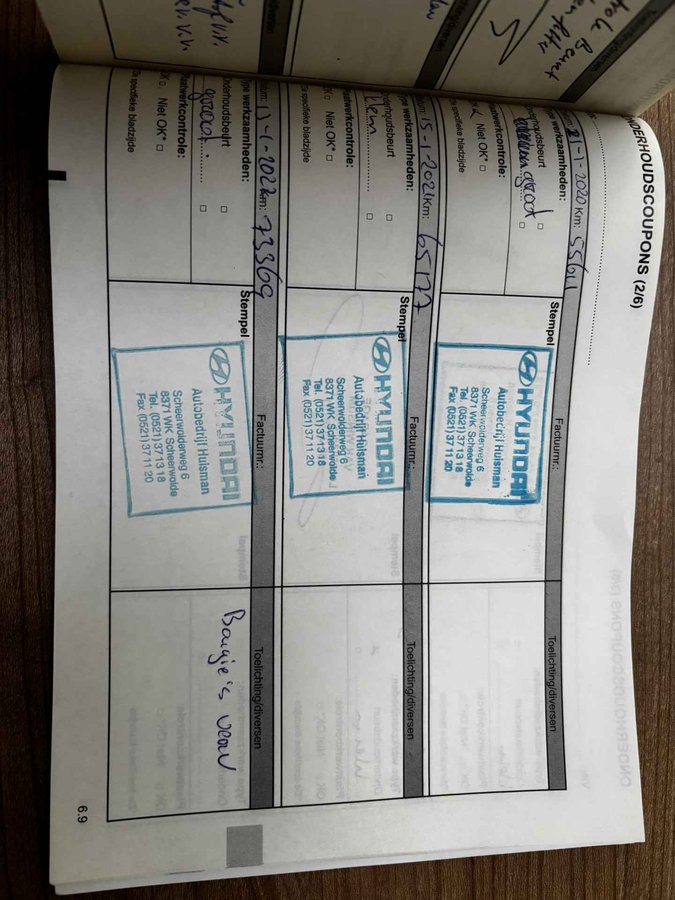 ONDERHOUDSCOUPONS (2/6)
21-1-2020 Km: 55611
Type werkzaamheden:
Onderhoudsbeurt
groot
Plaatwerkcontrole:
Niet OK*
Stempel
Factuurnr.:
Toelichting/diversen
HYUNDAI
Autobedrijf Huisman
Scheerwolderweg 6
8371 WK Scheerwolde
Tel. (0521) 37 13 18
Fax (0521) 37 11 20
15-1-2021 Km: 65177
Type werkzaamheden:
Onderhoudsbeurt
klein
Plaatwerkcontrole:
OK Niet OK*
Zie specifieke bladzijde
Stempel
Factuurnr.:
Toelichting/diversen
HYUNDAI
Autobedrijf Huisman
Scheerwolderweg 6
8371 WK Scheerwolde
Tel. (0521) 37 13 18
Fax (0521) 37 11 20
Datum: 13-1-2022 Km: 73369
Type werkzaamheden:
Onderhoudsbeurt
groot
Plaatwerkcontrole:
OK Niet OK*
Zie specifieke bladzijde
Stempel
Factuurnr.:
Toelichting/diversen
HYUNDAI
Autobedrijf Huisman
Scheerwolderweg 6
8371 WK Scheerwolde
Tel. (0521) 37 13 18
Fax (0521) 37 11 20
6.9